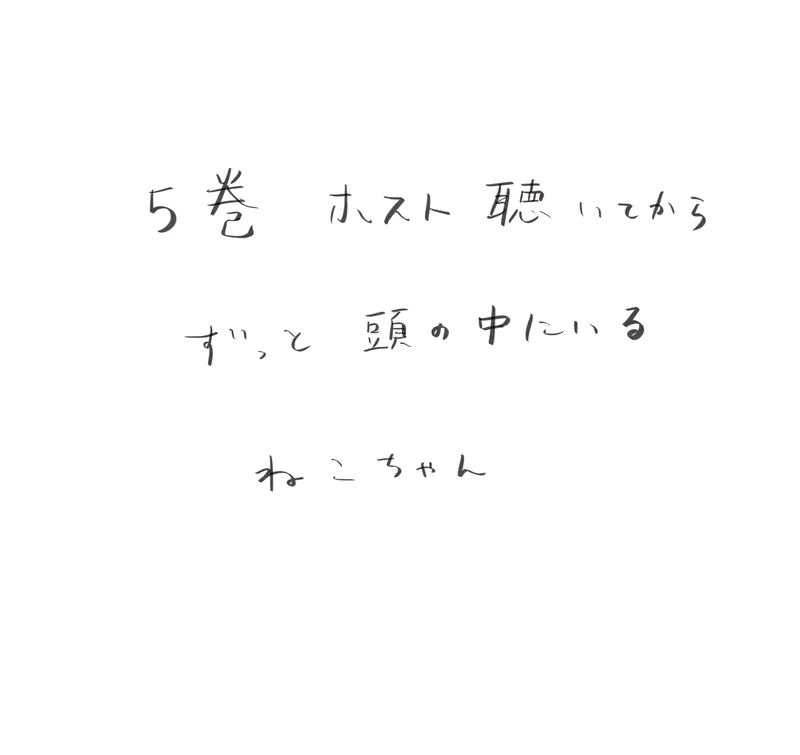 5巻 ホスト 聴いてから
ずっと 頭の中にいる
ねこちゃん